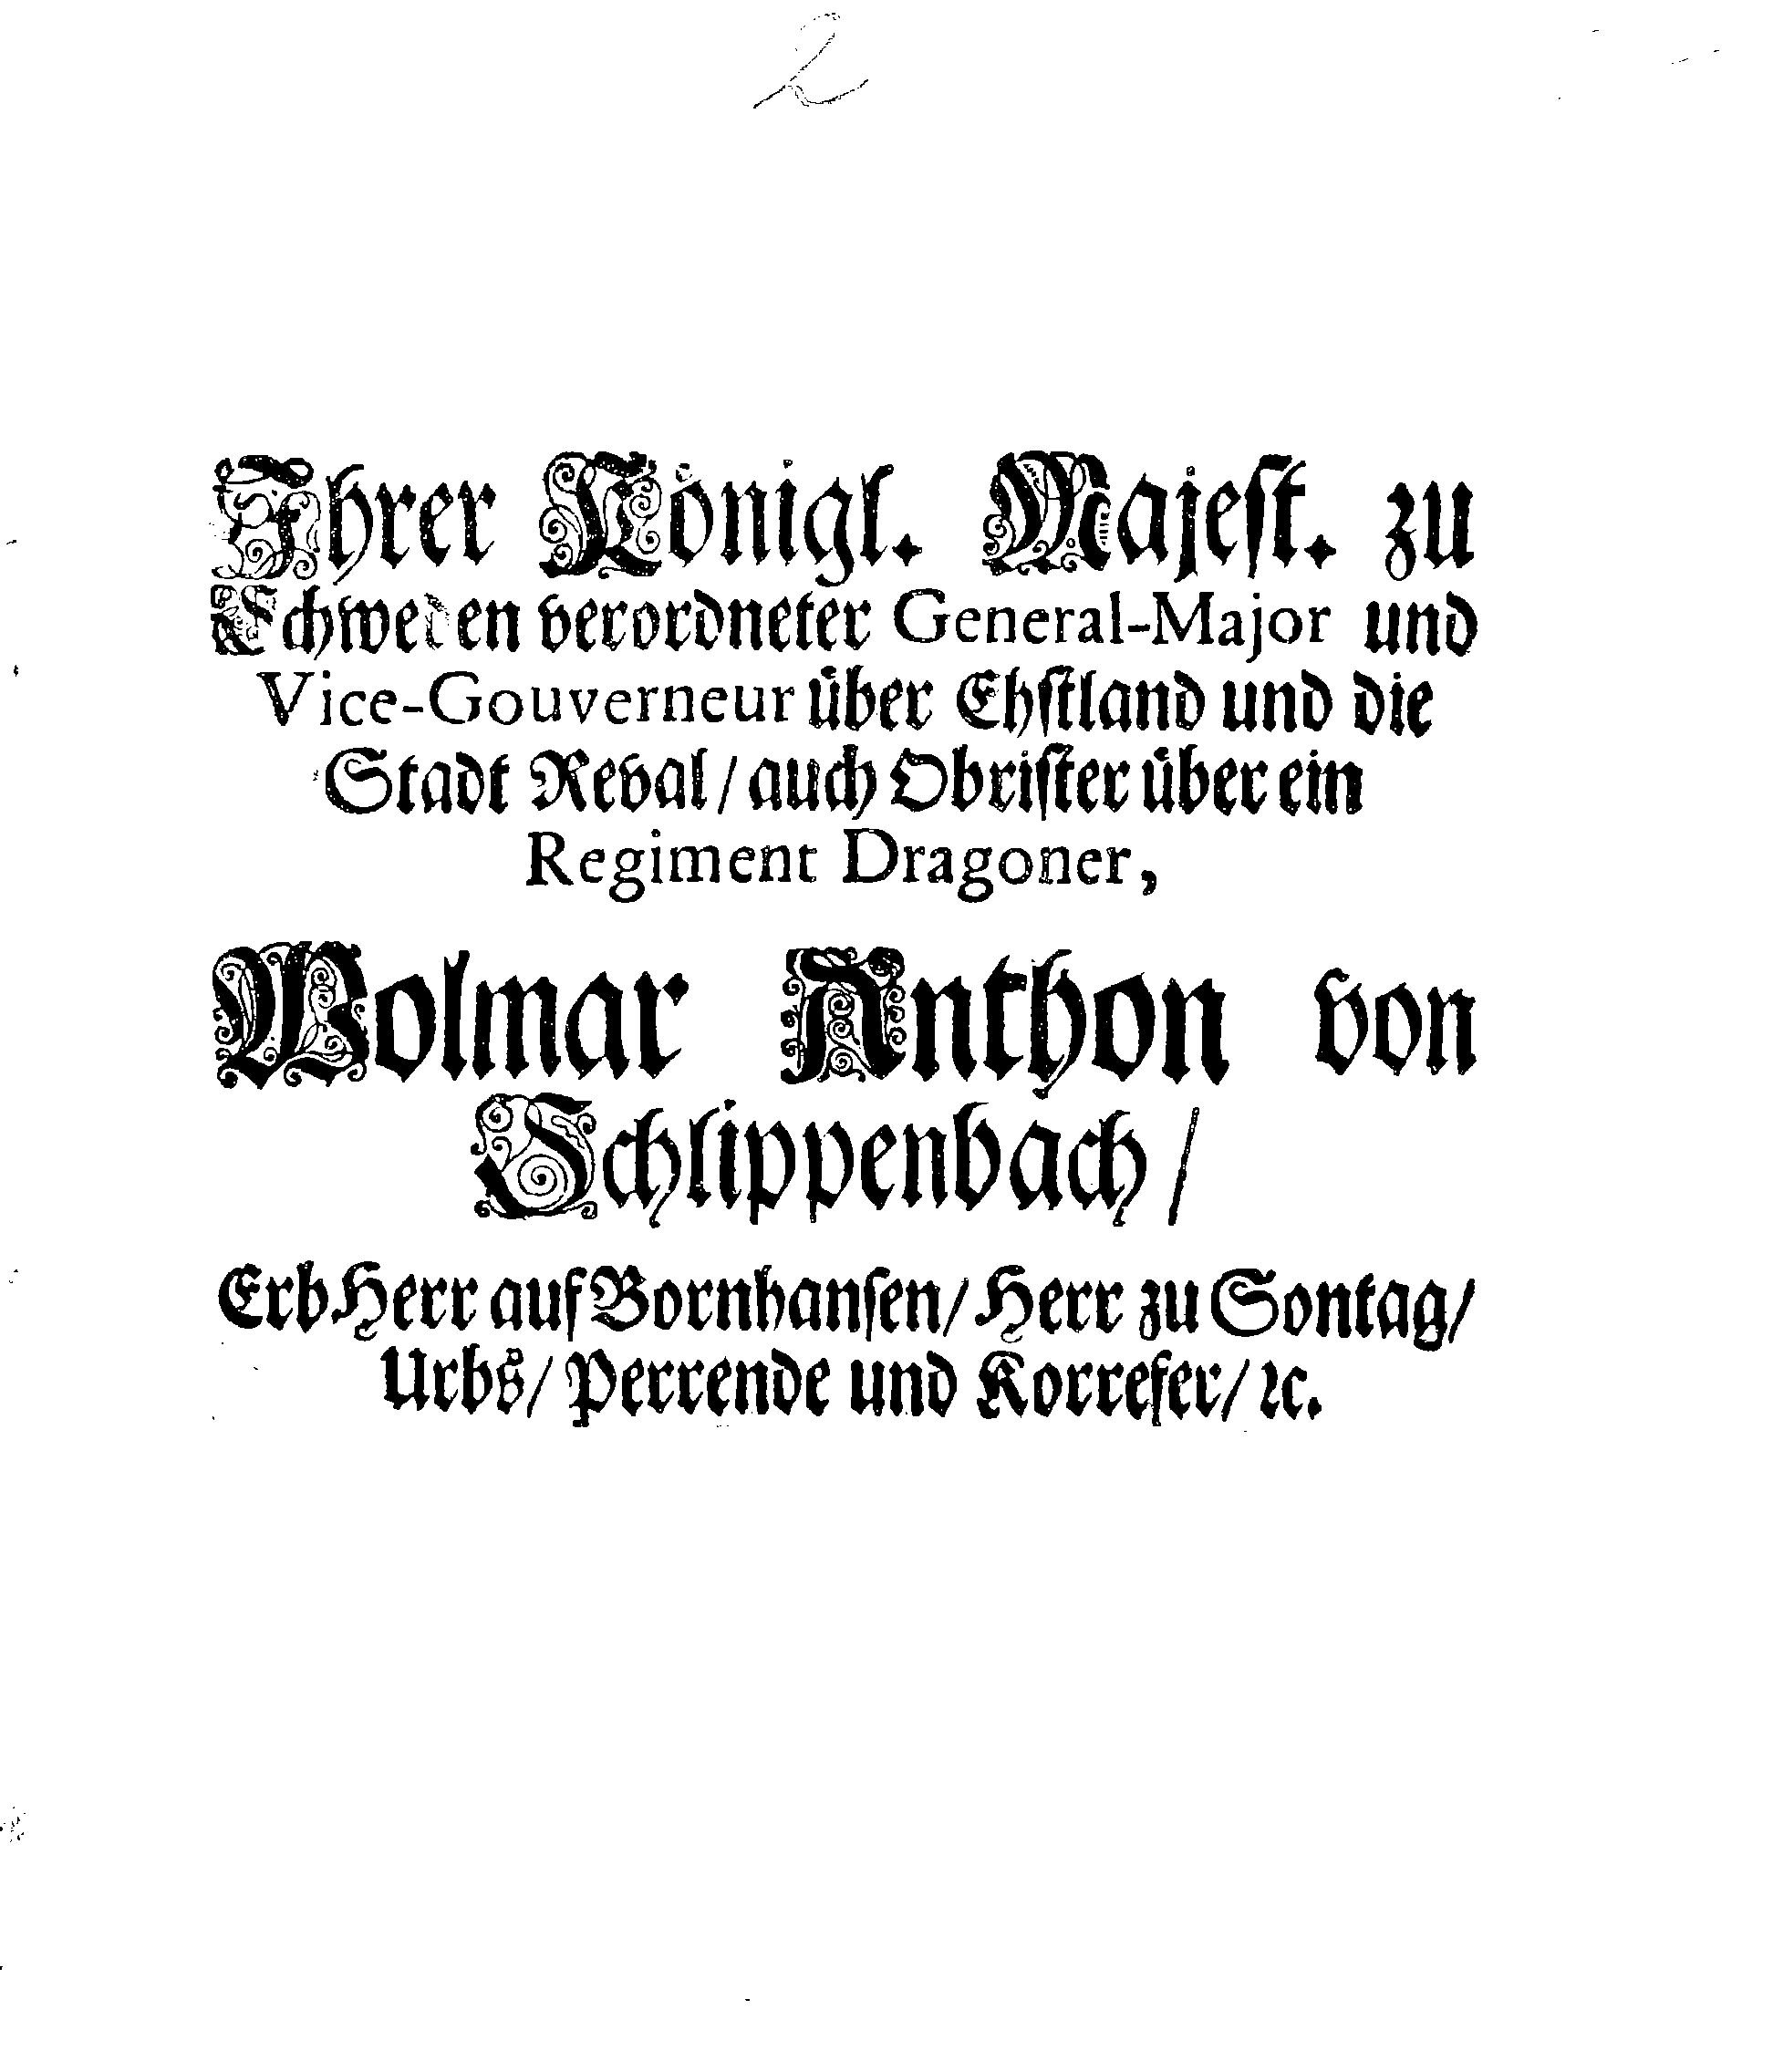 2
Ihrer Königl. Majest. zu
Schweden verordneter General-Major und
Vice-Gouverneur über Ehstland und die
Stadt Reval / auch Obrister über ein
Regiment Dragoner,
Wolmar Anthon von
Schlippenbach /
ErbHerr auf Bornhansen / Herr zu Sontag /
Urbs / Perrende und Korrefer / ꝛc.